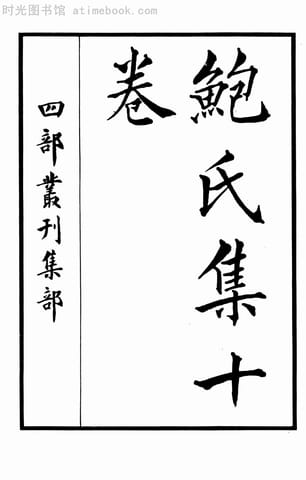 时光图书馆 · atimebook.com
鮑氏集十
卷
四部叢刊集部